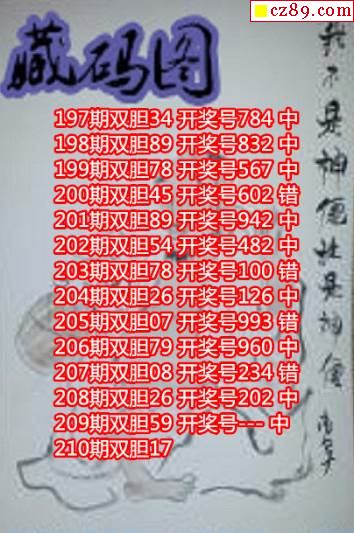 cz89.com
藏码图
197期双胆34 开奖号784 中
198期双胆89 开奖号832 中
199期双胆78 开奖号567 中
200期双胆45 开奖号602 错
201期双胆89 开奖号942 中
202期双胆54 开奖号482 中
203期双胆78 开奖号100 错
204期双胆26 开奖号126 中
205期双胆07 开奖号993 错
206期双胆79 开奖号960 中
207期双胆08 开奖号234 错
208期双胆26 开奖号202 中
209期双胆59 开奖号--- 中
210期双胆17
不是神仙 是神仙